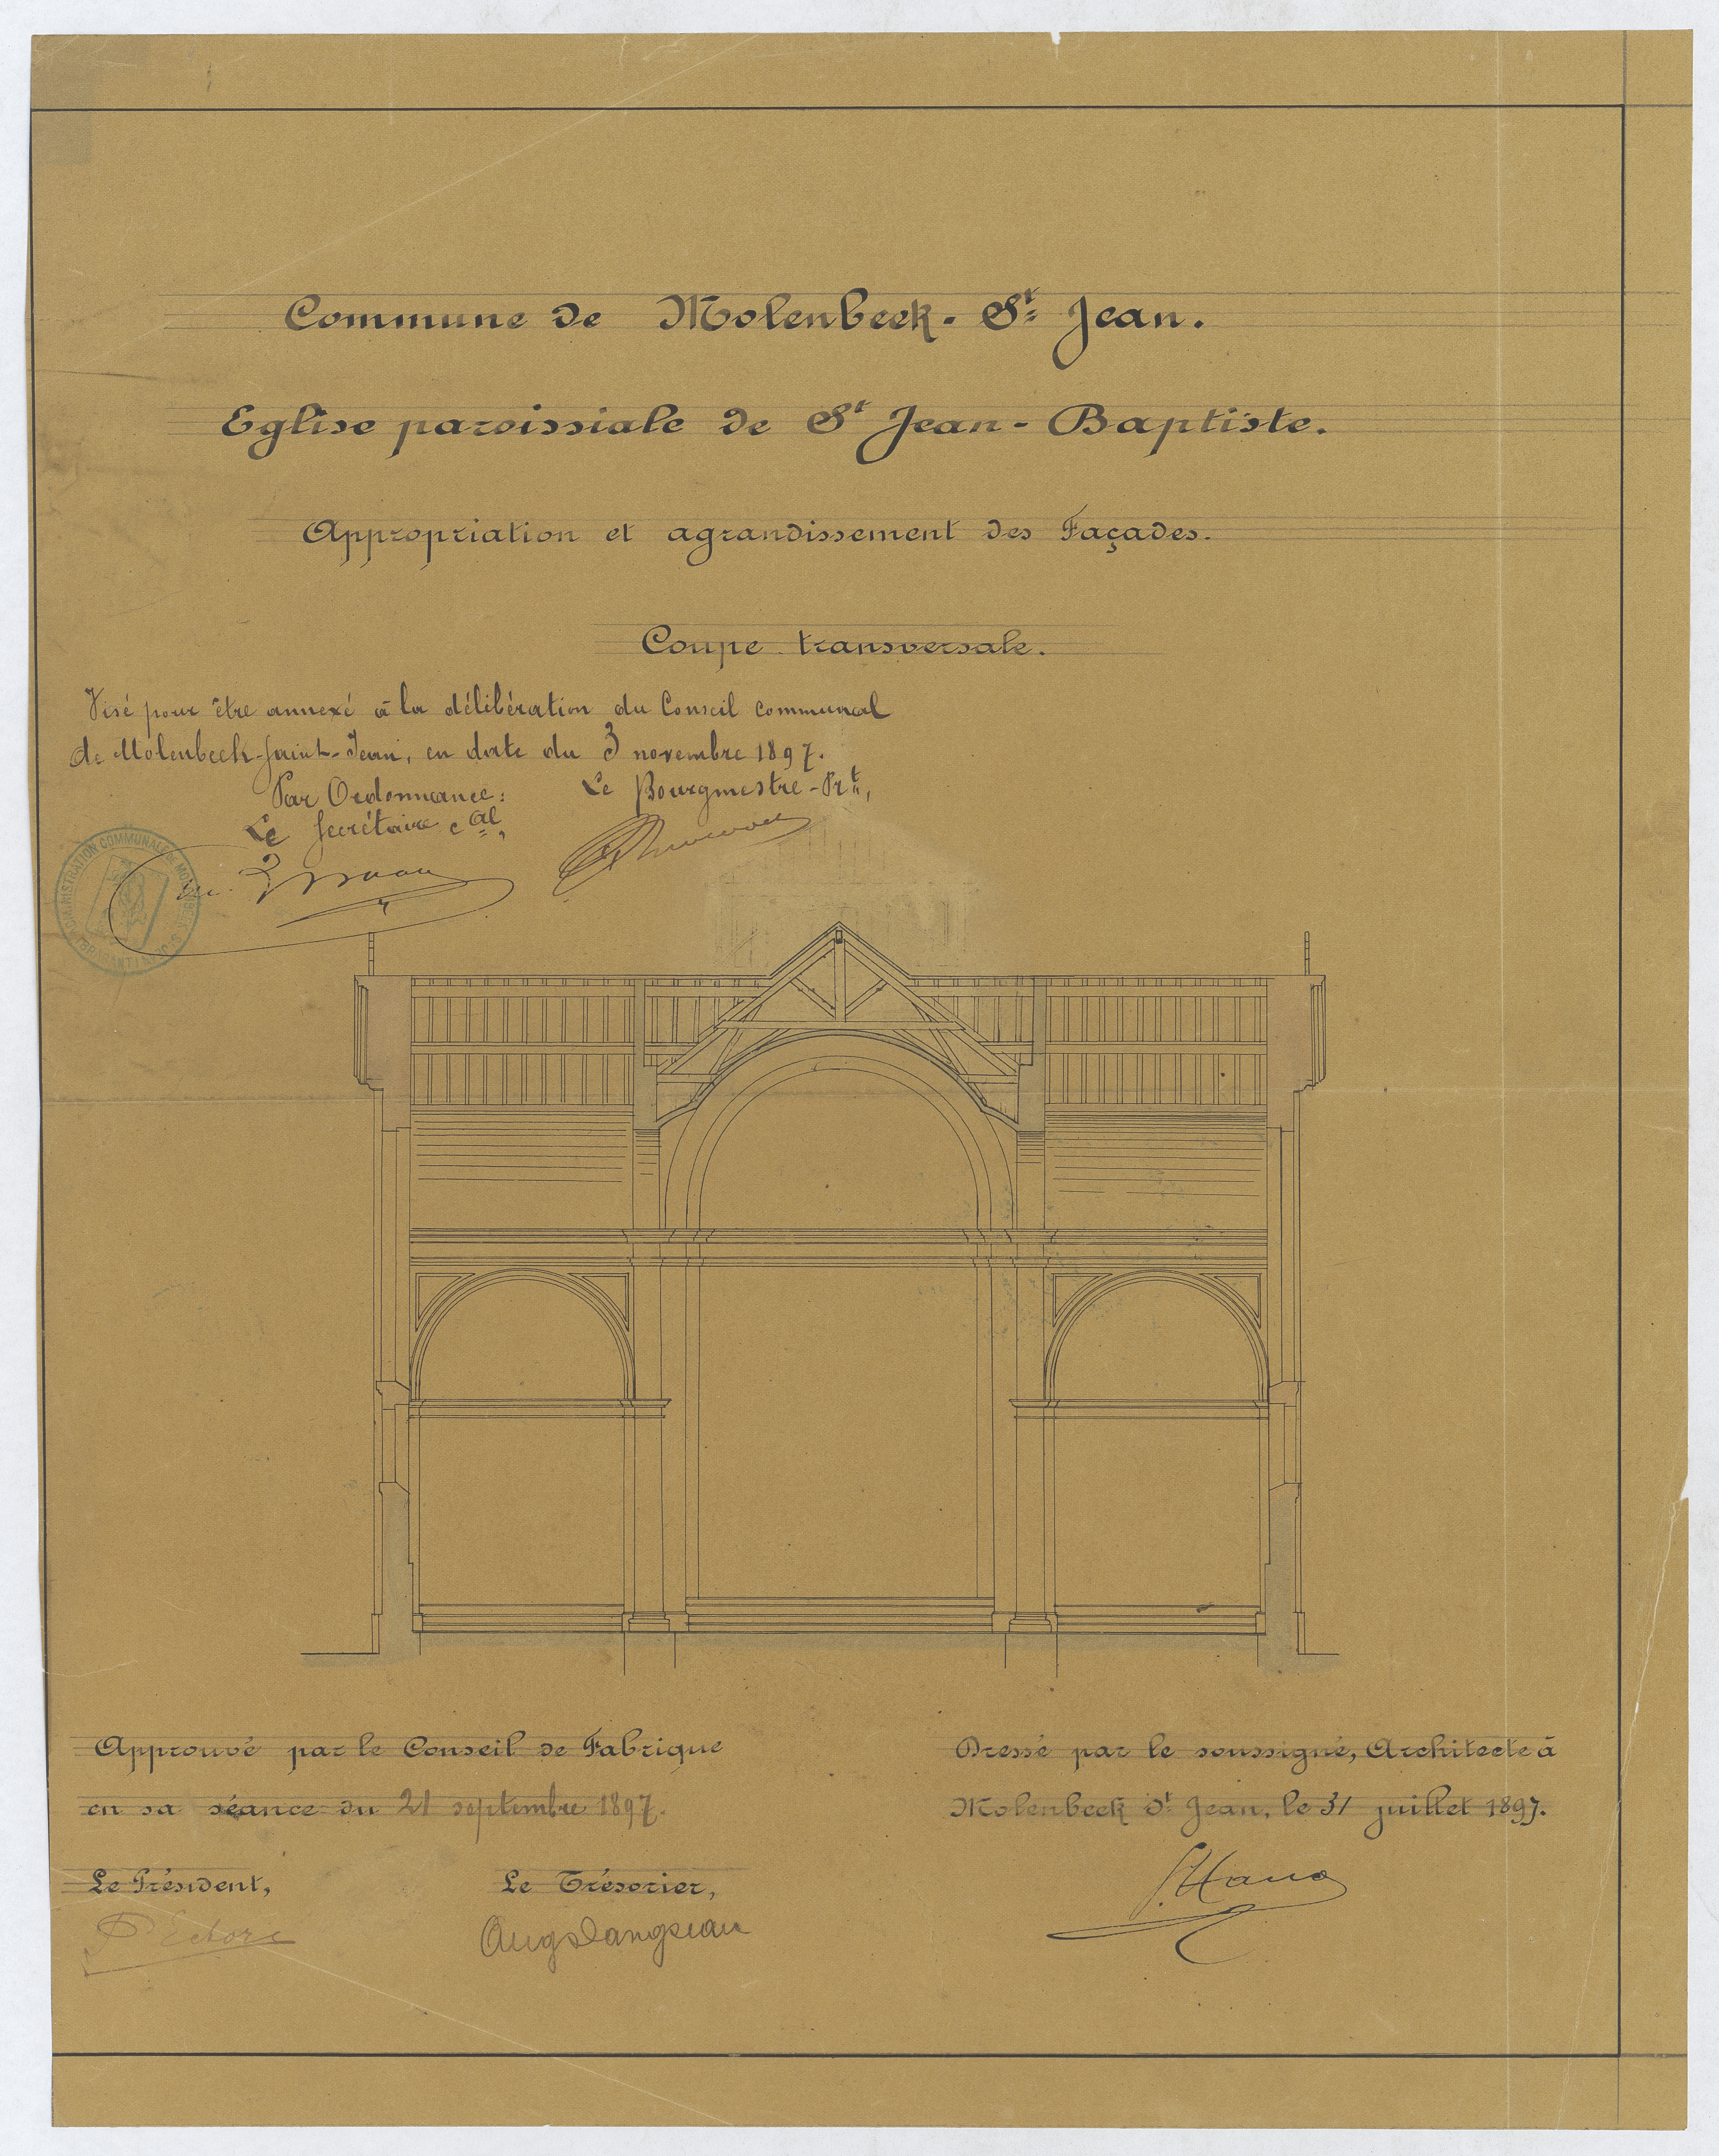 Commune de Molenbeek-St Jean.
Eglise paroissiale de St Jean-Baptiste.
Appropriation et agrandissement des Façades.
Coupe transversale.
Visé pour être annexé à la délibération du Conseil communal
de Molenbeek-Saint-Jean, en date du 3 novembre 1897.
Par Ordonnance: Le Bourgmestre-Prt,
Le Secrétaire cal,
ADMINISTRATION COMMUNALE DE
Approuvé par le Conseil de Fabrique
en sa séance du 21 septembre 1897.
Le Président,
Le Trésorier,
Dressé par le soussigné, Architecte à
Molenbeek St Jean, le 31 juillet 1897.